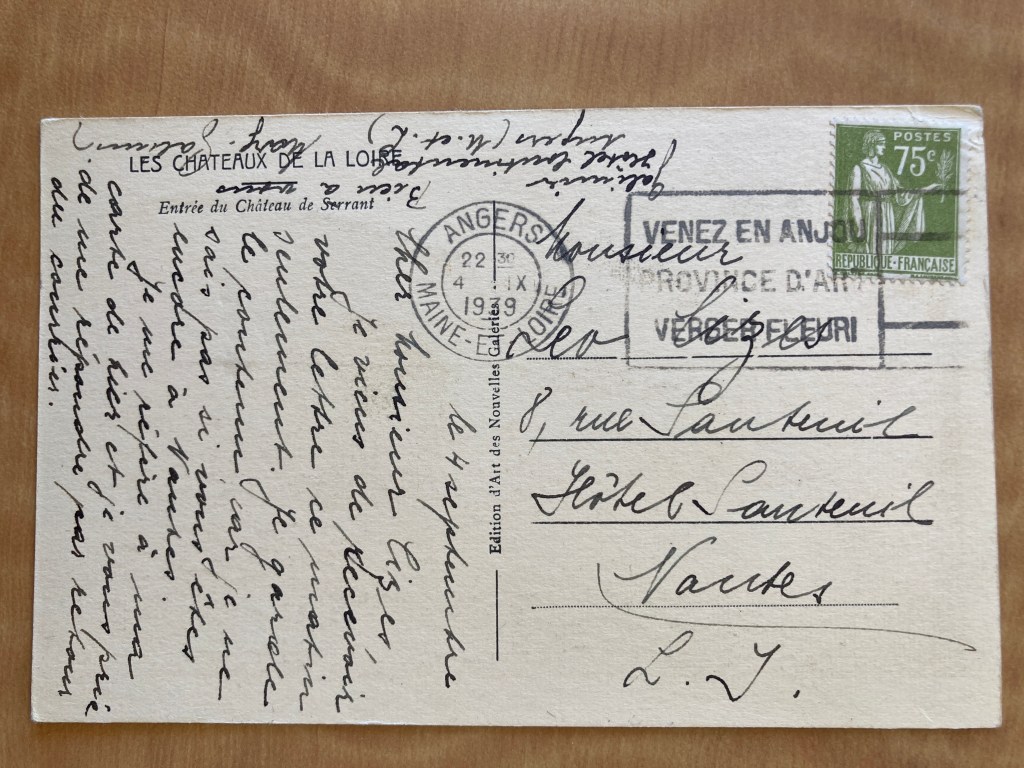 LES CHATEAUX DE LA LOIRE
Entrée du Château de Serrant
le 4 septembre
Cher Monsieur
Je viens de recevoir
votre lettre ce matin
seulement. Je garde
le contenu car je ne
sais pas si vous êtes
encore à Nantes.
Je me réfère à ma
carte de hier et je vous prie
de me répondre par retour
du courrier.
Bien à vous
Hôtel
Angers (M. et L.)
Edition d'Art des Nouvelles Galeries
ANGERS
22 30
4 IX
1939
MAINE-ET-LOIRE
VENEZ EN ANJOU
PROVINCE D'ART
VERGER FLEURI
POSTES
75c
REPUBLIQUE-FRANÇAISE
Monsieur
Leo
8, rue Santeuil
Hôtel Santeuil
Nantes
L. I.